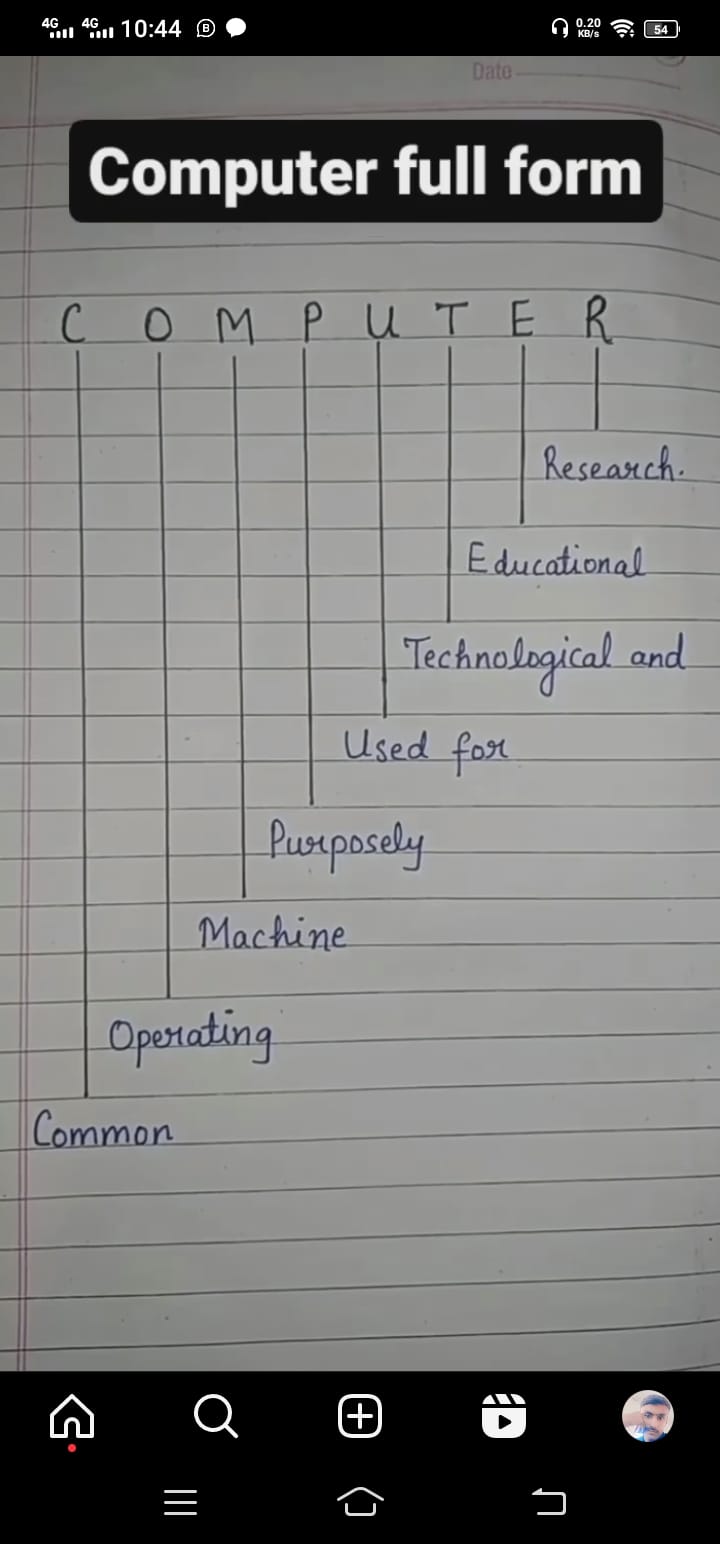 4G 4G 10:44 0.20 KB/s 54
Date
Computer full form
C O M P U T E R
Research.
Educational
Technological and
Used for
Purposely
Machine
Operating
Common